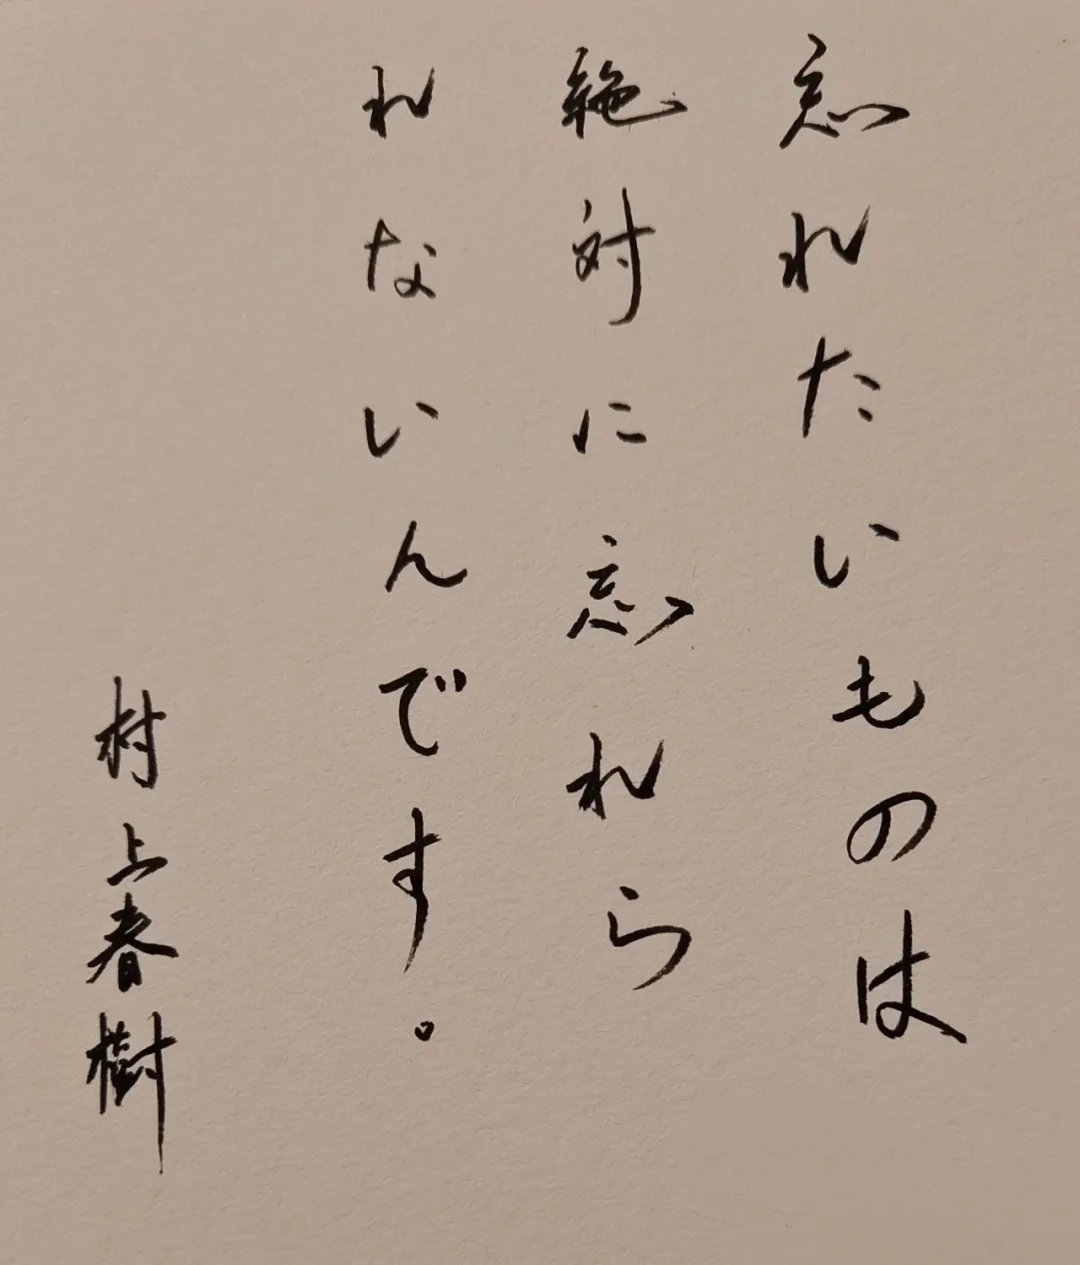 忘れたいものは
絶対に忘れら
れないんです。
村上春樹